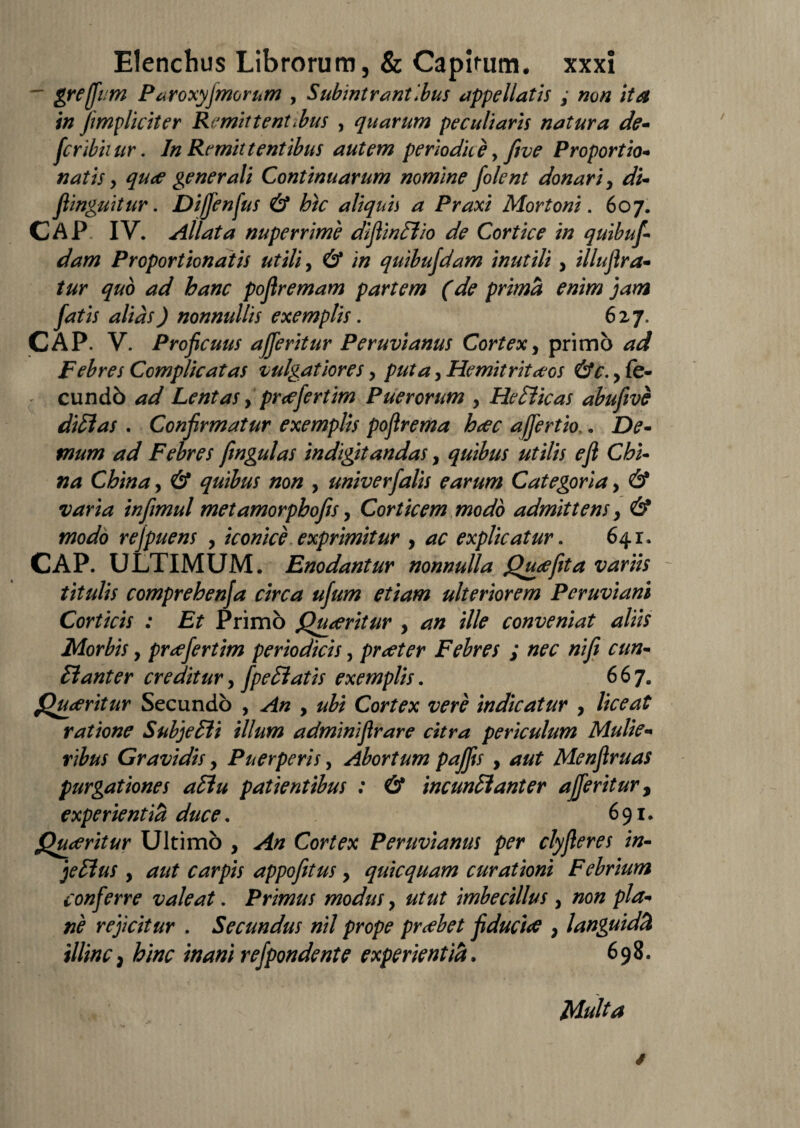 Elenchus Librorum, & Capitum. xxxi
greſſum Paroxyſmorum, Subintrantibus appellatis; non ita
in ſimpliciter Remittentibus, quarum peculiaris natura de-
ſcribitur. In Remittentibus autem periodicè, ſive Proportio-
natis, quæ generali Continuarum nomine ſolent donari, di-
ſtinguitur. Diſſenſus & hìc aliquis a Praxi Mortoni. 607.
CAP. IV. Allata nuperrimè diſtinctio de Cortice in quibuſ-
dam Proportionatis utili, & in quibuſdam inutili, illuſtra-
tur quò ad hanc poſtremam partem (de primâ enim jam
ſatis aliàs) nonnullis exemplis. 627.
CAP. V. Proficuus aſſeritur Peruvianus Cortex, primò ad
Febres Complicatas vulgatiores, puta, Hemitritæos &c., ſe-
cundò ad Lentas, præſertim Puerorum, Hecticas abuſivè
dictas. Confirmatur exemplis poſtrema hæc aſſertio. De-
mum ad Febres ſingulas indigitandas, quibus utilis eſt Chi-
na China, & quibus non, univerſalis earum Categoria, &
varia inſimul metamorphoſis, Corticem modò admittens, &
modò reſpuens, iconicè exprimitur, ac explicatur. 641.
CAP. ULTIMUM. Enodantur nonnulla Quæſita variis
titulis comprehenſa circa uſum etiam ulteriorem Peruviani
Corticis: Et Primò Quæritur, an ille conveniat aliis
Morbis, præſertim periodicis, præter Febres; nec niſi cun-
ctanter creditur, ſpectatis exemplis. 667.
Quæritur Secundò, An, ubi Cortex verè indicatur, liceat
ratione Subjecti illum adminiſtrare citra periculum Mulie-
ribus Gravidis, Puerperis, Abortum paſſis, aut Menſtruas
purgationes actu patientibus: & incunctanter aſſeritur,
experientiâ duce. 691.
Quæritur Ultimò, An Cortex Peruvianus per clyſteres in-
jectus, aut carpis appoſitus, quicquam curationi Febrium
conferre valeat. Primus modus, utut imbecillus, non pla-
nè rejicitur. Secundus nil prope præbet fiduciæ, languidâ
illinc, hinc inani reſpondente experientiâ. 698.
Multa